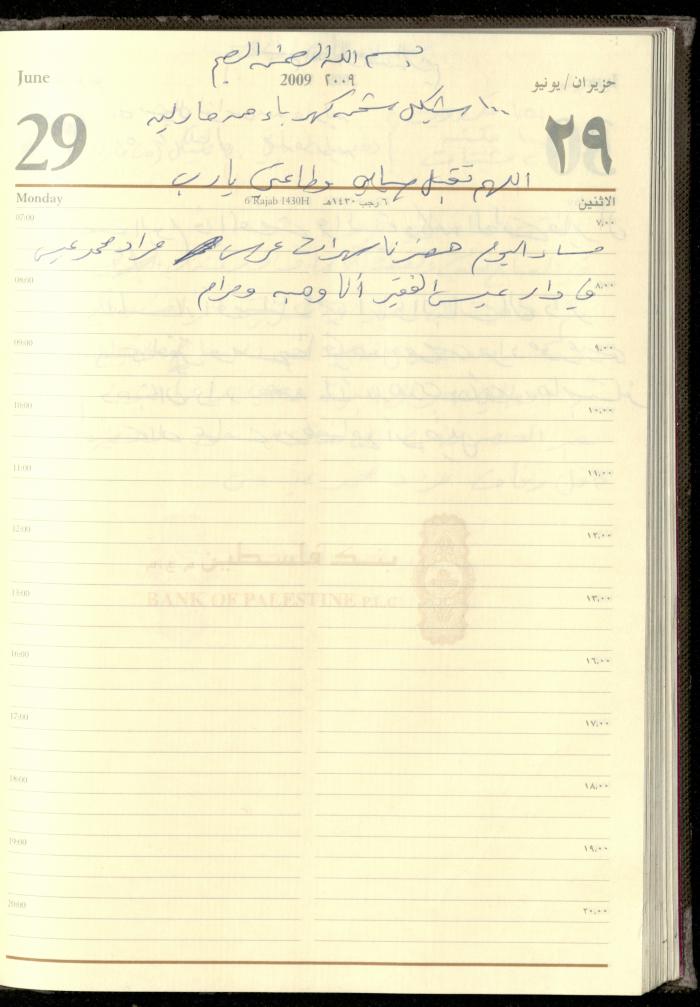 بسم الله الرحمن الرحيم
June
2009 ٢٠٠٩
حزيران / يونيو
١٠٠ شيكل شحن كهرباء من
29
٢٩
اللهم تقبل صيامي وطاعتي يا رب
Monday
6 Rajab 1430H
٦ رجب ١٤٣٠هـ
الاثنين
07:00
٧,٠٠
مساء اليوم حضرنا سهرات عرس مراد محمد عيسى
08:00
٨,٠٠
في دار عيسى الفقير أنا وهبه ومرام
09:00
٩,٠٠
10:00
١٠,٠٠
11:00
١١,٠٠
12:00
١٢,٠٠
13:00
١٣,٠٠
16:00
١٦,٠٠
17:00
١٧,٠٠
18:00
١٨,٠٠
19:00
١٩,٠٠
20:00
٢٠,٠٠
بنك فلسطين
BANK OF PALESTINE P.L.C